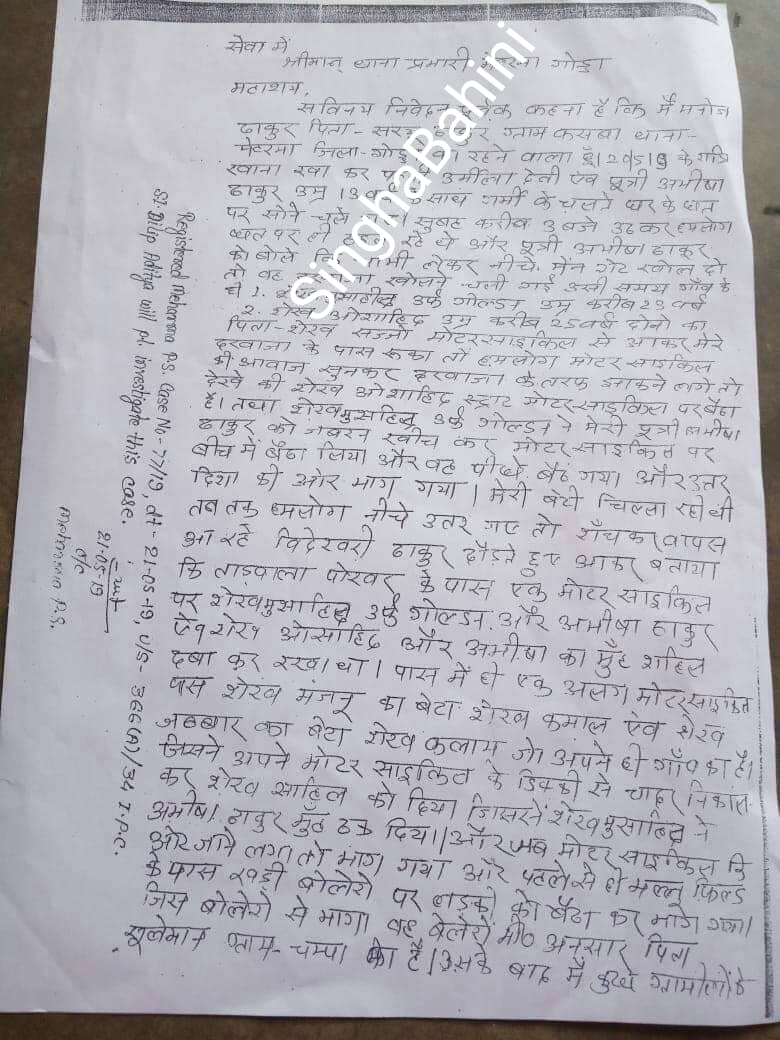 सेवा में
श्रीमान् थाना प्रभारी मेहरमा गोड्डा
महाशय,
सविनय निवेदन पूर्वक कहना है कि मैं मनोज
ठाकुर पिता- ठाकुर ग्राम कसबा थाना-
मेहरमा जिला- का रहने वाला हूँ। के रात्रि
खाना खा कर उर्मीला देवी एवं पुत्री अमीषा
ठाकुर उम्र 13 साथ गर्मी के चलते घर के छत
पर सोने चले सुबह करीब 3 बजे उठकर हमलोग
छत पर ही रहे थे और पुत्री अमीषा ठाकुर
को बोले कि लेकर नीचे मेन गेट खोल दो
तो वह खोलने चली गई उसी समय गाँव के
1. उर्फ गोल्डन उम्र करीब 23 वर्ष
2. शेख ओशाहिद उम्र करीब 25 वर्ष दोनो का
पिता-शेख मोटरसाइकिल से आकर मेरे
दरवाजा के पास रूका तो हमलोग मोटरसाइकिल
की आवाज सुनकर दरवाजा के तरफ झाकने लगे तो
देखे की शेख ओशाहिद स्ट्राट मोटरसाइकिल पर बैठा
है। तथा उर्फ गोल्डन ने मेरी पुत्री अमीषा
ठाकुर को जबरन खीच कर मोटरसाइकिल पर
बीच में बैठा लिया और वह पीछे बैठ गया और उत्तर
दिशा की ओर भाग गया। मेरी बेटी चिल्ला रही थी
तब तक हमलोग नीचे उतर गए तो शौच कर वापस
आ रहे ठाकुर दौड़ते हुए आकर बताया
कि पोखर के पास एक मोटरसाइकिल
पर उर्फ गोल्डन और अमीषा ठाकुर
एवं शेख ओसाहिद और अमीषा का मुँह
दबा कर रखा था। पास में ही एक अलग मोटरसाइकिल
पास शेख मंजनू का बेटा शेख कमाल एवं शेख
जब्बार का बेटा शेख कलाम जो अपने ही गाँव का है।
जिसने अपने मोटर साइकिल के डिक्की से चादर निकाल
कर शेख साहिल को दिया जिससे ने
अमीषा ठाकुर मुँह ढक दिया। और जब मोटरसाइकिल कि
ओर जाने लगा तो भाग गया और पहले से ही फिल्ड
के पास खड़ी बोलेरो पर लड़की को बैठा कर भाग गया।
जिस बोलेरो से भागा वह बेलेरो मो० अनुसार पिता
सूलेमान ग्राम- चम्पा का है। उसके बाद मैं कुछ ग्रामीणों के
Registered Meharma P.S. Case No- 77/19, dt- 21-05-19, u/s- 366(A)/34 I.P.C.
S.I. Dilip Aditya will pl. investigate this case.
21-05-19
O/C
Meharma P.S.
SinghaBahini